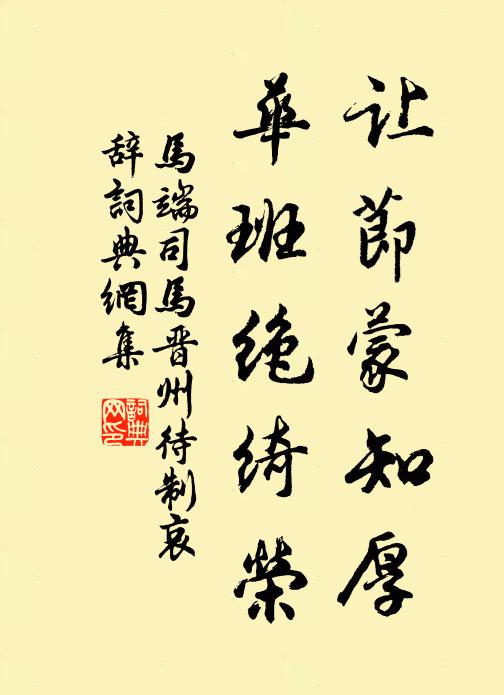 让節蒙知厚
華班绝綺榮
馬端司馬晋州待制哀
辞詞典網集
詞典网印